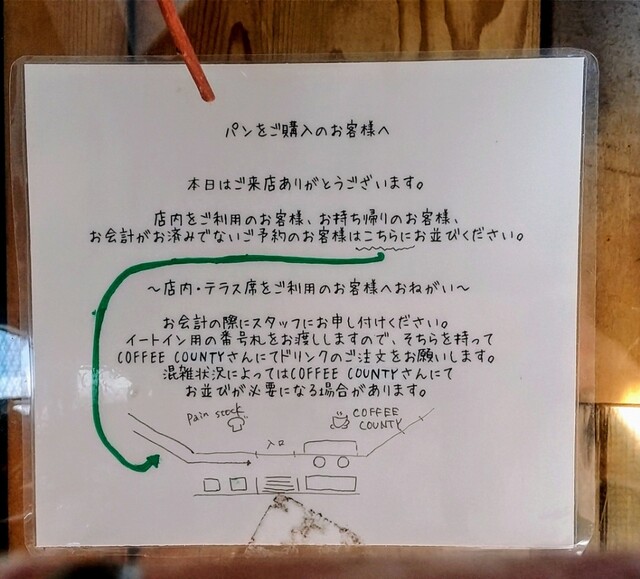 パンをご購入のお客様へ
本日はご来店ありがとうございます。
店内をご利用のお客様、お持ち帰りのお客様、
お会計がお済みでないご予約のお客様はこちらにお並びください。
〜店内・テラス席をご利用のお客様へおねがい〜
お会計の際にスタッフにお申し付けください。
イートイン用の番号札をお渡ししますので、そちらを持って
COFFEE COUNTYさんにてドリンクのご注文をお願いします。
混雑状況によってはCOFFEE COUNTYさんにて
お並びが必要になる場合があります。
Pain stock
入口
COFFEE
COUNTY